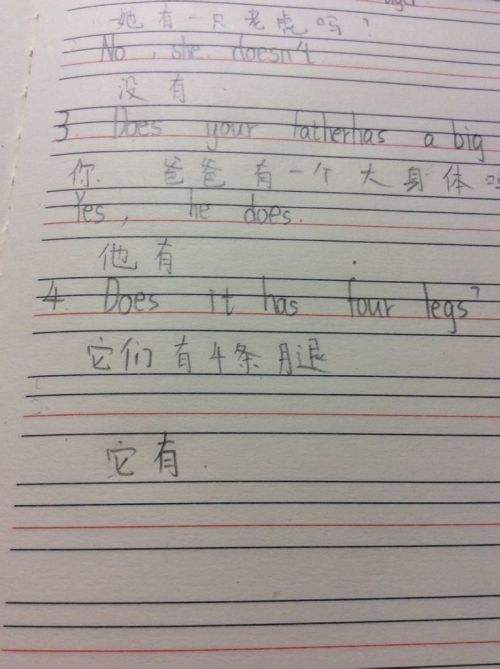 她有一只老虎吗?
No, she doesn't
没有.
3 Does your father has a big
你 爸爸有一个大身体
Yes, he does.
他有
4 Does it has four legs?
它们有4条腿
它有.